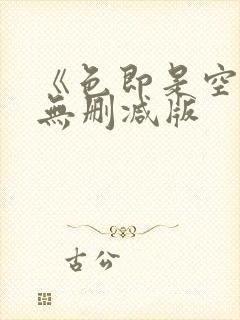 《色即是空
無删减版
古公